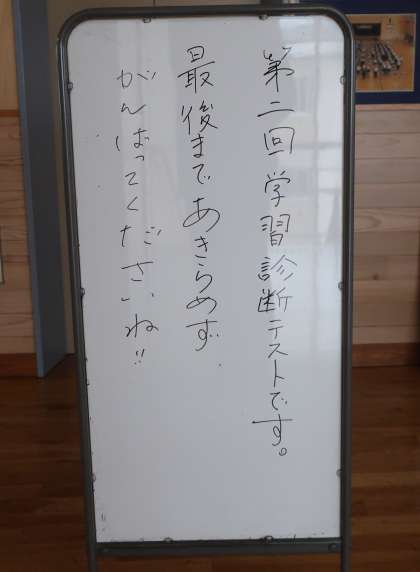 第二回学習診断テストです。
最後まであきらめず
がんばってくださいね!!